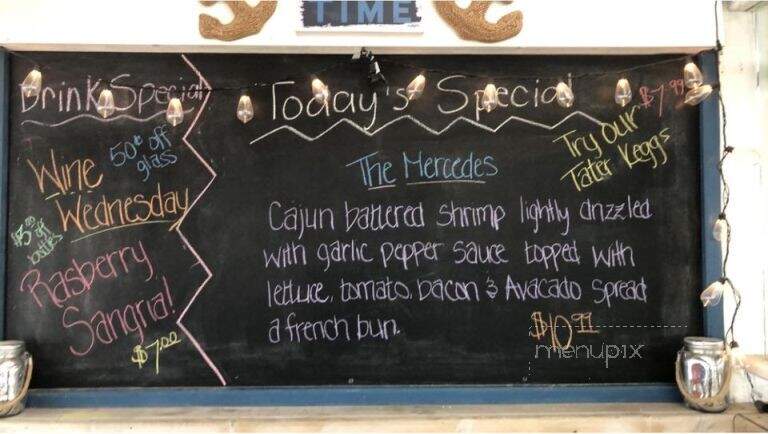 TIME
Drink Special
50¢ off
glass
Wine
Wednesday
$5.00 off
bottles
Rasberry
Sangria!
$7.00
Today's Special
$7.99
Try our
Tater Keggs
The Mercedes
Cajun battered shrimp lightly drizzled
with garlic pepper sauce topped with
lettuce, tomato, bacon & Avacado spread
a french bun.
$10.99
menupix